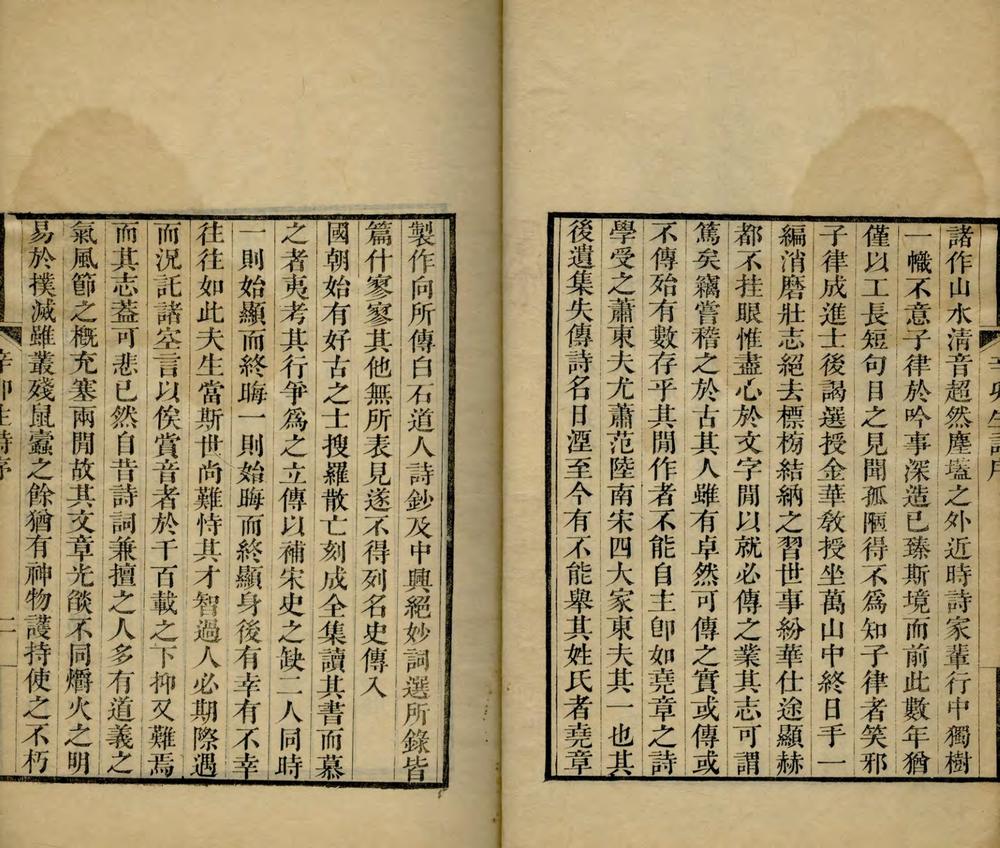 諸作山水清音超然塵壒之外近時詩家輩行中獨樹
一幟不意子律於吟事深造已臻斯境而前此數年猶
僅以工長短句目之見聞孤陋得不爲知子律者笑邪
子律成進士後謁選授金華敎授坐萬山中終日手一
編消磨壯志絕去標榜結納之習世事紛華仕途顯赫
都不挂眼惟盡心於文字閒以就必傳之業其志可謂
篤矣竊嘗稽之於古其人雖有卓然可傳之實或傳或
不傳殆有數存乎其閒作者不能自主卽如堯章之詩
學受之蕭東夫尤蕭范陸南宋四大家東夫其一也其
後遺集失傳詩名日湮至今有不能舉其姓氏者堯章
製作向所傳白石道人詩鈔及中興絕妙詞選所錄皆
篇什寥寥其他無所表見遂不得列名史傳入
國朝始有好古之士搜羅散亡刻成全集讀其書而慕
之者夷考其行爭爲之立傳以補宋史之缺二人同時
一則始顯而終晦一則始晦而終顯身後有幸有不幸
往往如此夫生當斯世尚難恃其才智過人必期際遇
而況託諸空言以俟賞音者於千百載之下抑又難焉
而其志蓋可悲已然自昔詩詞兼擅之人多有道義之
氣風節之槪充塞兩閒故其文章光燄不同爝火之明
易於撲滅雖叢殘鼠蠹之餘猶有神物護持使之不朽
辛卯生詩序
二